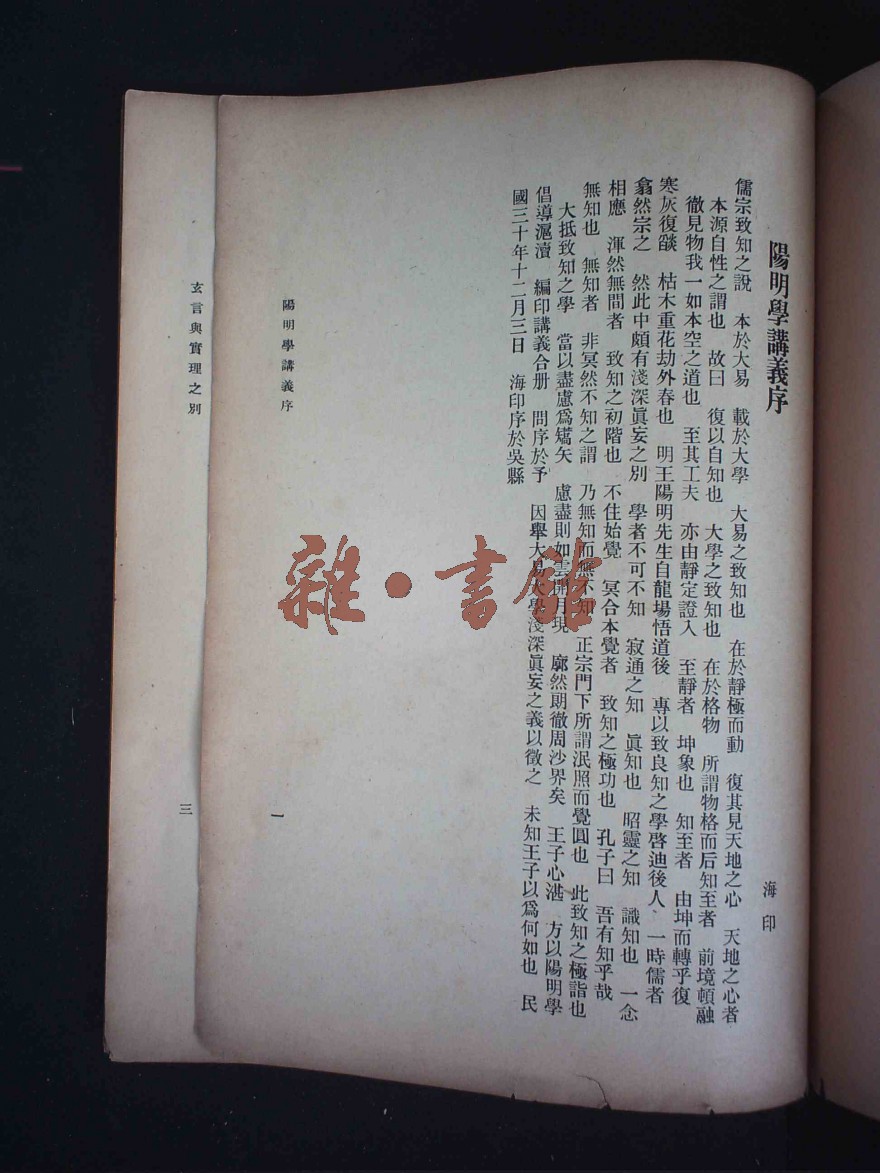 陽明學講義序
海印
儒宗致知之說　本於大易　載於大學　大易之致知也　在於靜極而動　復其見天地之心　天地之心者
本源自性之謂也　故曰　復以自知也　大學之致知也　在於格物　所謂物格而后知至者　前境頓融
徹見物我一如本空之道也　至其工夫　亦由靜定證入　至靜者　坤象也　知至者　由坤而轉乎復
寒灰復燄　枯木重花劫外春也　明王陽明先生自龍場悟道後　專以致良知之學啓迪後人、一時儒者
翕然宗之　然此中頗有淺深眞妄之別　學者不可不知　寂通之知　眞知也　昭靈之知　識知也　一念
相應　渾然無間者　致知之初階也　不住始覺　冥合本覺者　致知之極功也　孔子曰　吾有知乎哉
無知也　無知者　非冥然不知之謂　乃無知而無不知　正宗門下所謂泯照而覺圓也　此致知之極詣也
大抵致知之學　當以盡慮爲嚆矢　慮盡則如雲開月現　廓然朗徹周沙界矣　王子心湛　方以陽明學
倡導滬瀆　編印講義合册　問序於予　因舉大易大學淺深眞妄之義以徵之　未知王子以爲何如也　民
國三十年十二月三日　海印序於吳縣
陽明學講義序
一
玄言與實理之別
三
雜·書館